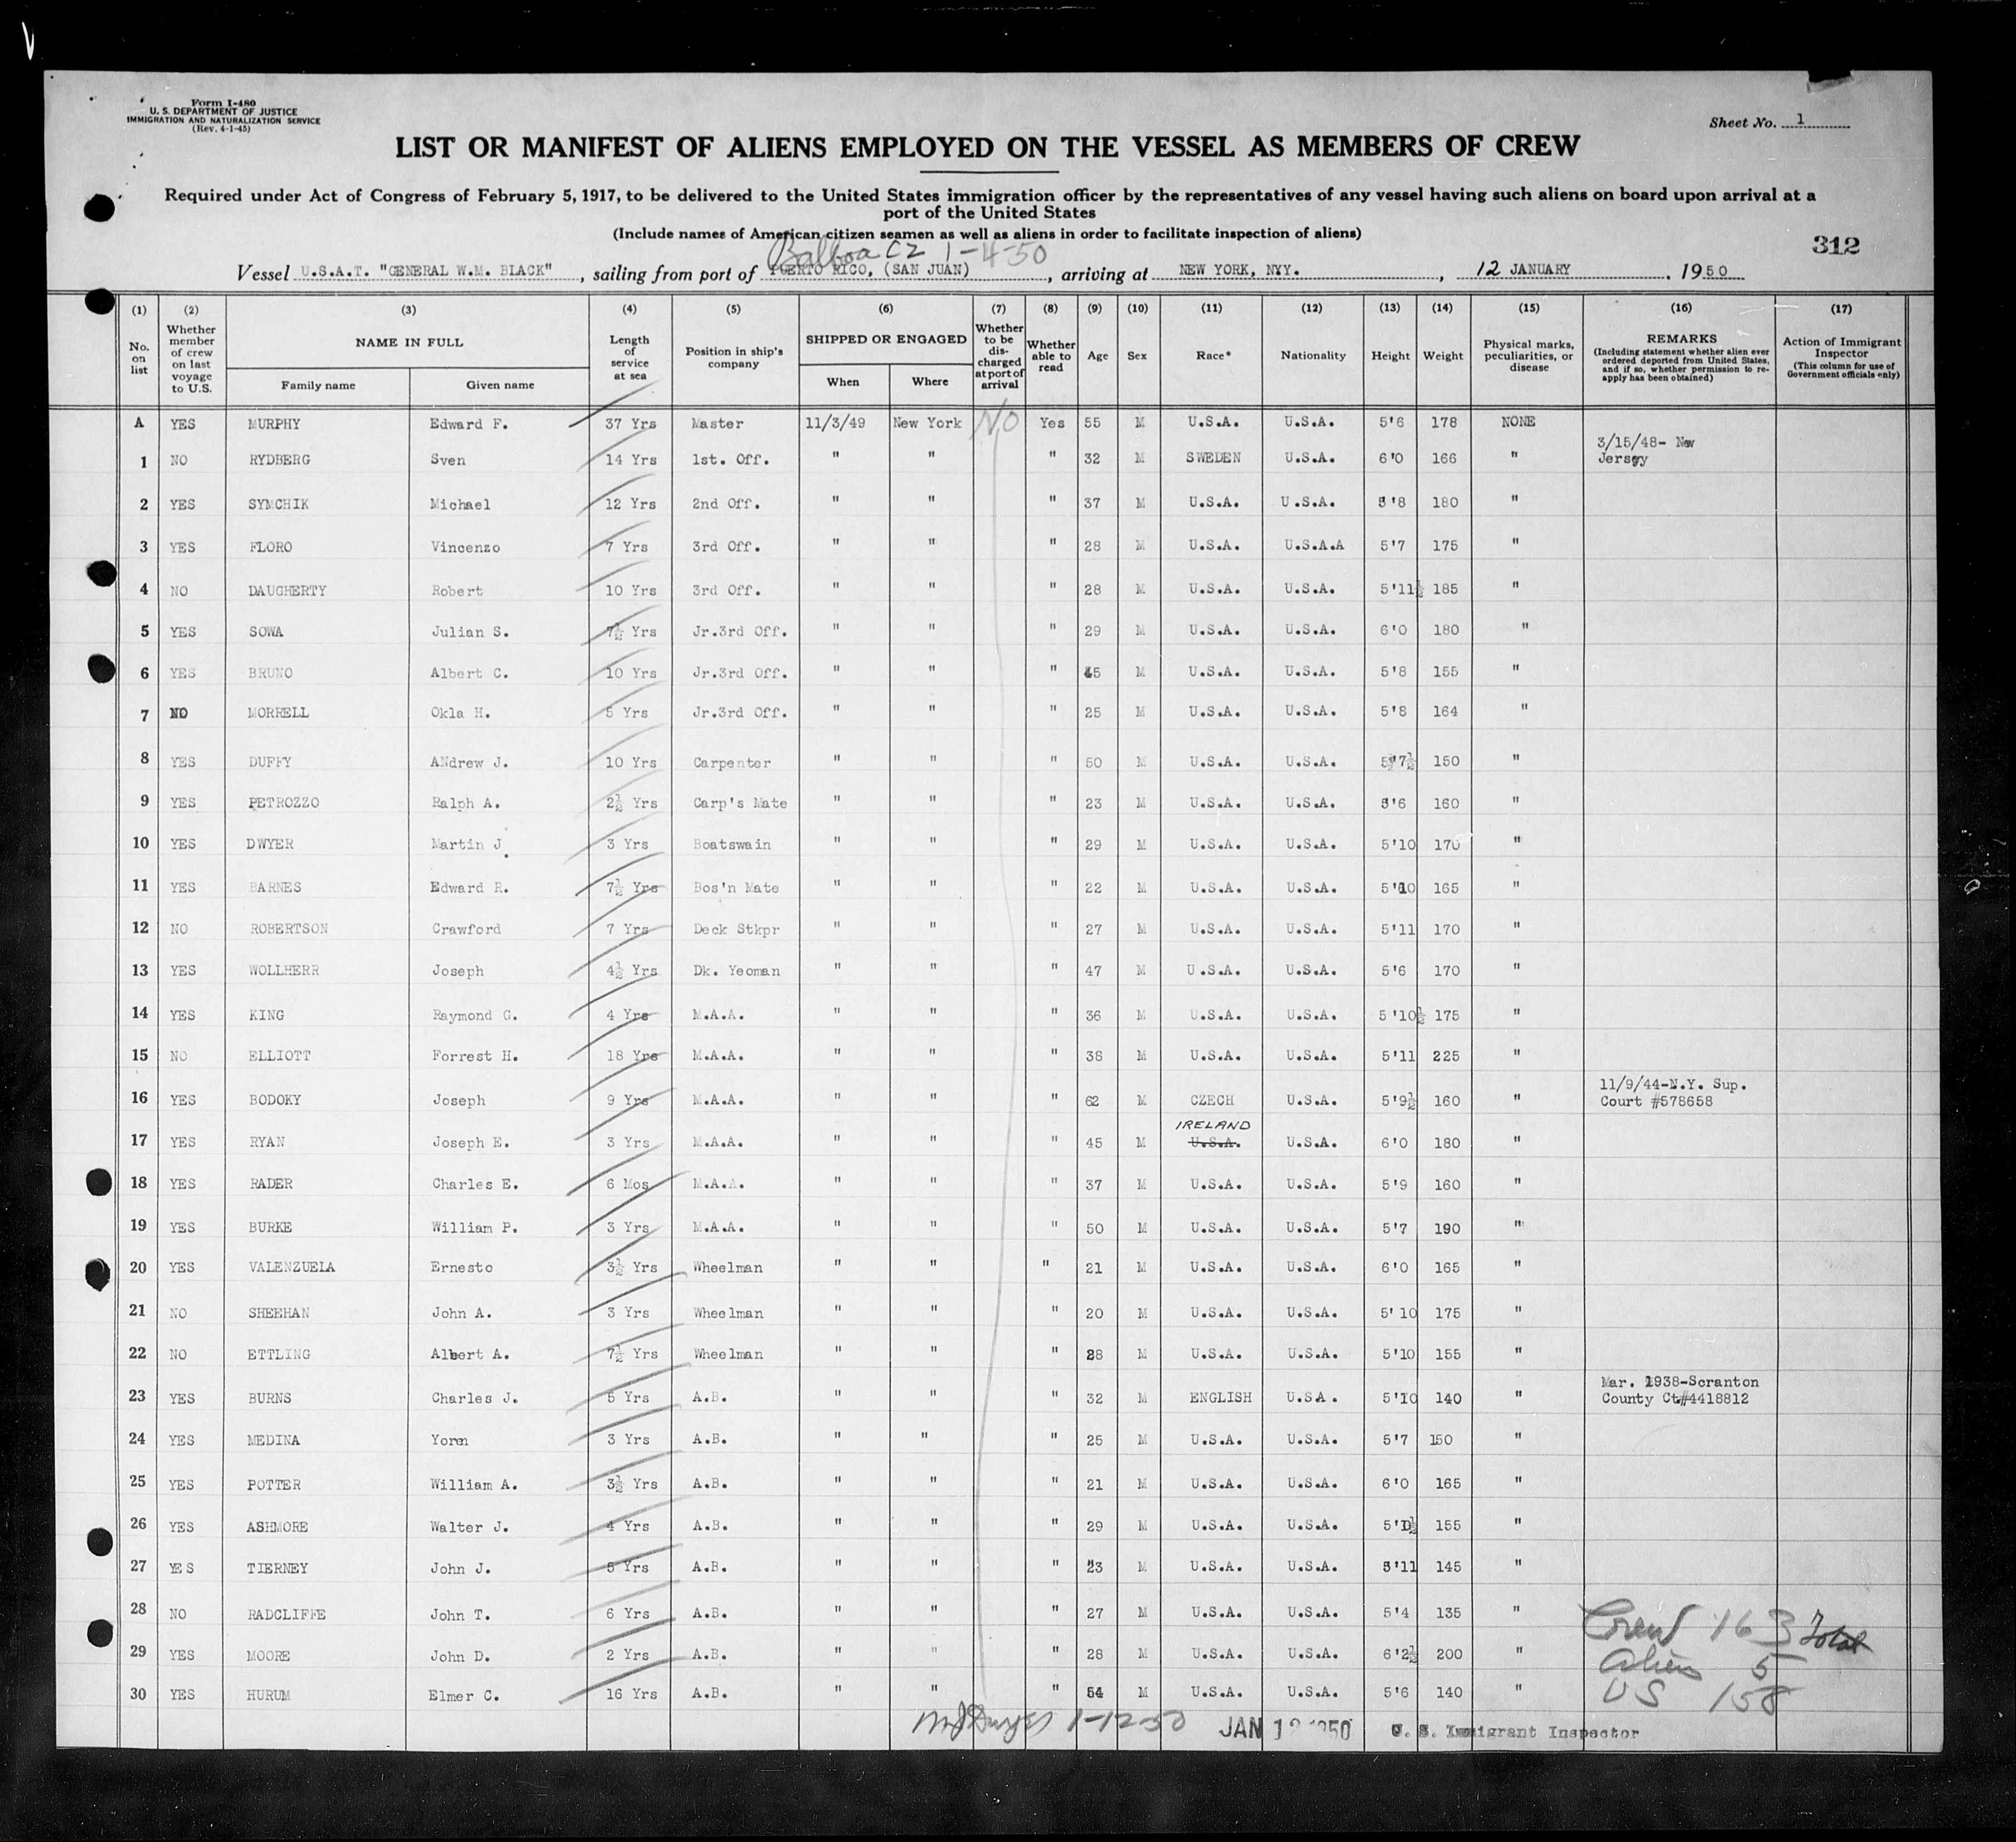 Form I-480
U. S. DEPARTMENT OF JUSTICE
IMMIGRATION AND NATURALIZATION SERVICE
(Rev. 4-1-45)
Sheet No. 1
LIST OR MANIFEST OF ALIENS EMPLOYED ON THE VESSEL AS MEMBERS OF CREW
Required under Act of Congress of February 5, 1917, to be delivered to the United States immigration officer by the representatives of any vessel having such aliens on board upon arrival at a
port of the United States
(Include names of American citizen seamen as well as aliens in order to facilitate inspection of aliens)
312
Balboa CZ 1-4-50
Vessel U.S.A.T. "GENERAL W.M. BLACK", sailing from port of PUERTO RICO, (SAN JUAN), arriving at NEW YORK, NYY., 12 JANUARY, 1950
(1) (2) (3) (4) (5) (6) (7) (8) (9) (10) (11) (12) (13) (14) (15) (16) (17)
No. on list
Whether member of crew on last voyage to U.S.
NAME IN FULL
Family name
Given name
Length of service at sea
Position in ship's company
SHIPPED OR ENGAGED
When
Where
Whether to be discharged at port of arrival
Whether able to read
Age
Sex
Race*
Nationality
Height
Weight
Physical marks, peculiarities, or disease
REMARKS
(Including statement whether alien ever ordered deported from United States, and if so, whether permission to reapply has been obtained)
Action of Immigrant Inspector
(This column for use of Government officials only)
A YES MURPHY Edward F. 37 Yrs Master 11/3/49 New York NO Yes 55 M U.S.A. U.S.A. 5'6 178 NONE
1 NO RYDBERG Sven 14 Yrs 1st. Off. " " " 32 M SWEDEN U.S.A. 6'0 166 " 3/15/48- New Jersey
2 YES SYMCHIK Michael 12 Yrs 2nd Off. " " " 37 M U.S.A. U.S.A. 5'8 180 "
3 YES FLORO Vincenzo 7 Yrs 3rd Off. " " " 28 M U.S.A. U.S.A.A 5'7 175 "
4 NO DAUGHERTY Robert 10 Yrs 3rd Off. " " " 28 M U.S.A. U.S.A. 5'11½ 185 "
5 YES SOWA Julian S. 7½ Yrs Jr.3rd Off. " " " 29 M U.S.A. U.S.A. 6'0 180 "
6 YES BRUNO Albert C. 10 Yrs Jr.3rd Off. " " " 45 M U.S.A. U.S.A. 5'8 155 "
7 NO MORRELL Okla H. 5 Yrs Jr.3rd Off. " " " 25 M U.S.A. U.S.A. 5'8 164 "
8 YES DUFFY ANdrew J. 10 Yrs Carpenter " " " 50 M U.S.A. U.S.A. 5'7½ 150 "
9 YES PETROZZO Ralph A. 2½ Yrs Carp's Mate " " " 23 M U.S.A. U.S.A. 5'6 160 "
10 YES DWYER Martin J. 3 Yrs Boatswain " " " 29 M U.S.A. U.S.A. 5'10 170 "
11 YES BARNES Edward R. 7½ Yrs Bos'n Mate " " " 22 M U.S.A. U.S.A. 5'10 165 "
12 NO ROBERTSON Crawford 7 Yrs Deck Stkpr " " " 27 M U.S.A. U.S.A. 5'11 170 "
13 YES WOLLHERR Joseph 4½ Yrs Dk. Yeoman " " " 47 M U.S.A. U.S.A. 5'6 170 "
14 YES KING Raymond G. 4 Yrs M.A.A. " " " 36 M U.S.A. U.S.A. 5'10½ 175 "
15 NO ELLIOTT Forrest H. 18 Yrs M.A.A. " " " 38 M U.S.A. U.S.A. 5'11 225 "
16 YES BODOKY Joseph 9 Yrs M.A.A. " " " 62 M CZECH U.S.A. 5'9½ 160 " 11/9/44-N.Y. Sup. Court #578658
17 YES RYAN Joseph E. 3 Yrs M.A.A. " " " 45 M IRELAND U.S.A. U.S.A. 6'0 180 "
18 YES RADER Charles E. 6 Mos M.A.A. " " " 37 M U.S.A. U.S.A. 5'9 160 "
19 YES BURKE William P. 3 Yrs M.A.A. " " " 50 M U.S.A. U.S.A. 5'7 190 "
20 YES VALENZUELA Ernesto 3½ Yrs Wheelman " " " 21 M U.S.A. U.S.A. 6'0 165 "
21 NO SHEEHAN John A. 3 Yrs Wheelman " " " 20 M U.S.A. U.S.A. 5'10 175 "
22 NO ETTLING Albert A. 7½ Yrs Wheelman " " " 28 M U.S.A. U.S.A. 5'10 155 "
23 YES BURNS Charles J. 5 Yrs A.B. " " " 32 M ENGLISH U.S.A. 5'10 140 " Mar. 1938-Scranton County Ct#4418812
24 YES MEDINA Yorem 3 Yrs A.B. " " " 25 M U.S.A. U.S.A. 5'7 150 "
25 YES POTTER William A. 3½ Yrs A.B. " " " 21 M U.S.A. U.S.A. 6'0 165 "
26 YES ASHMORE Walter J. 4 Yrs A.B. " " " 29 M U.S.A. U.S.A. 155 "
27 YES TIERNEY John J. 5 Yrs A.B. " " " 23 M U.S.A. U.S.A. 5'11 145 "
28 NO RADCLIFFE John T. 6 Yrs A.B. " " " 27 M U.S.A. U.S.A. 5'4 135 "
29 YES MOORE John D. 2 Yrs A.B. " " " 28 M U.S.A. U.S.A. 6'2½ 200 "
30 YES HURUM Elmer C. 16 Yrs A.B. " " " 54 M U.S.A. U.S.A. 5'6 140 "
Crew 163 Total
Alien 5
US 158
1-12-50 JAN 12 1950 U. S. Immigrant Inspector